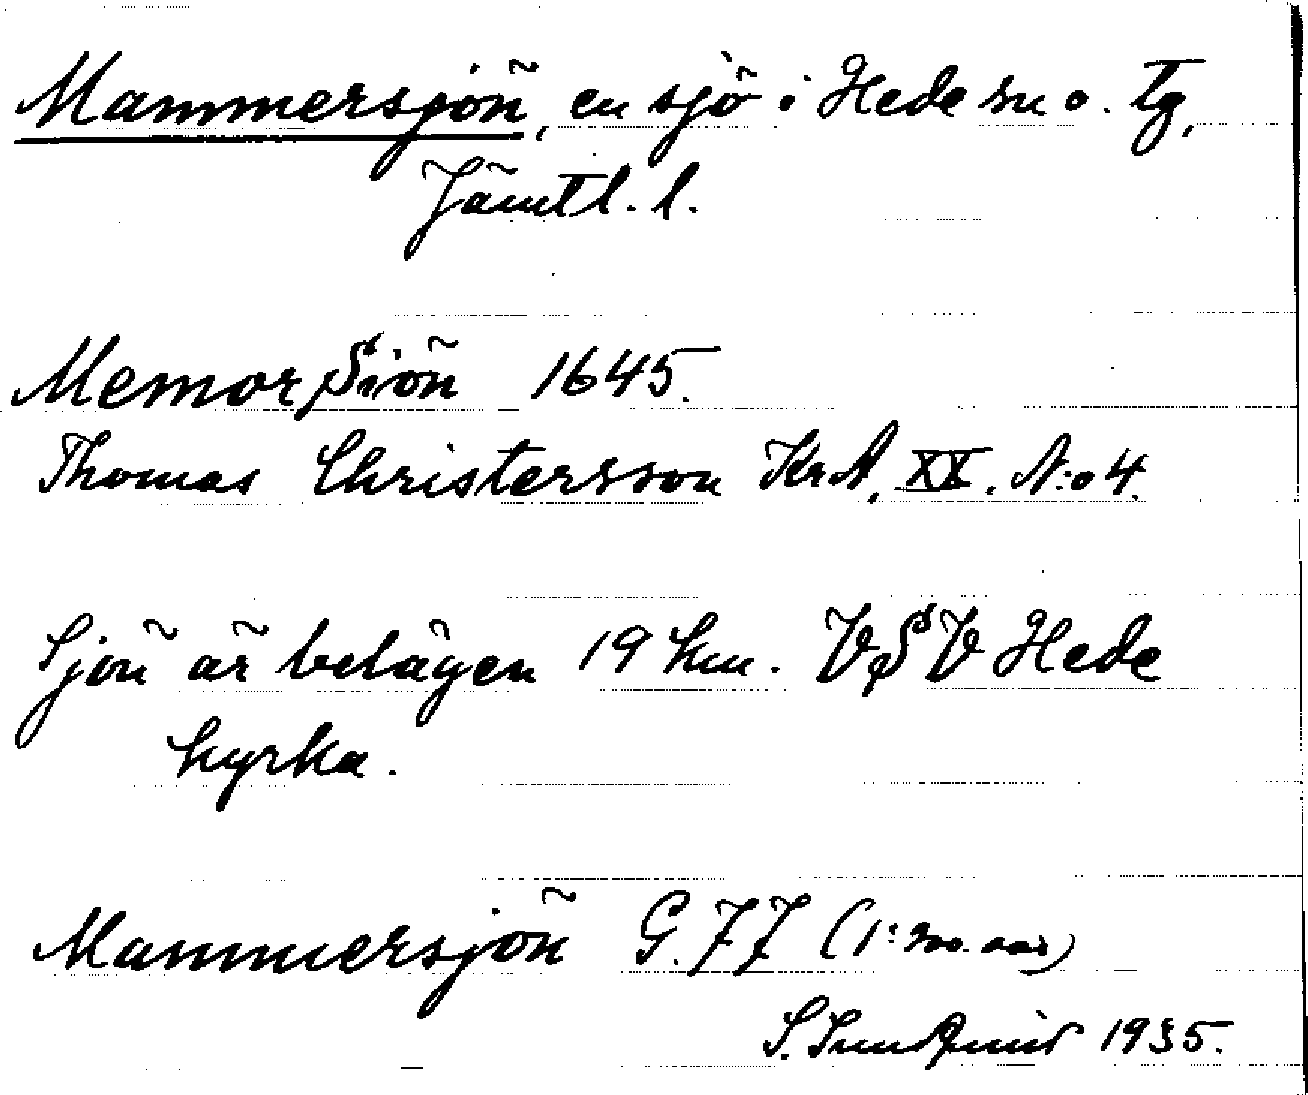 Mammersjön, en sjö i Hede sn o. tg,
Jämtl. l.
Memor Siön 1645.
Thomas Christersson KrA, XX. N:o 4.
Sjön är belägen 19 km. VSV Hede
kyrka.
Mammersjön G. 77 (1:200.000)
1935.